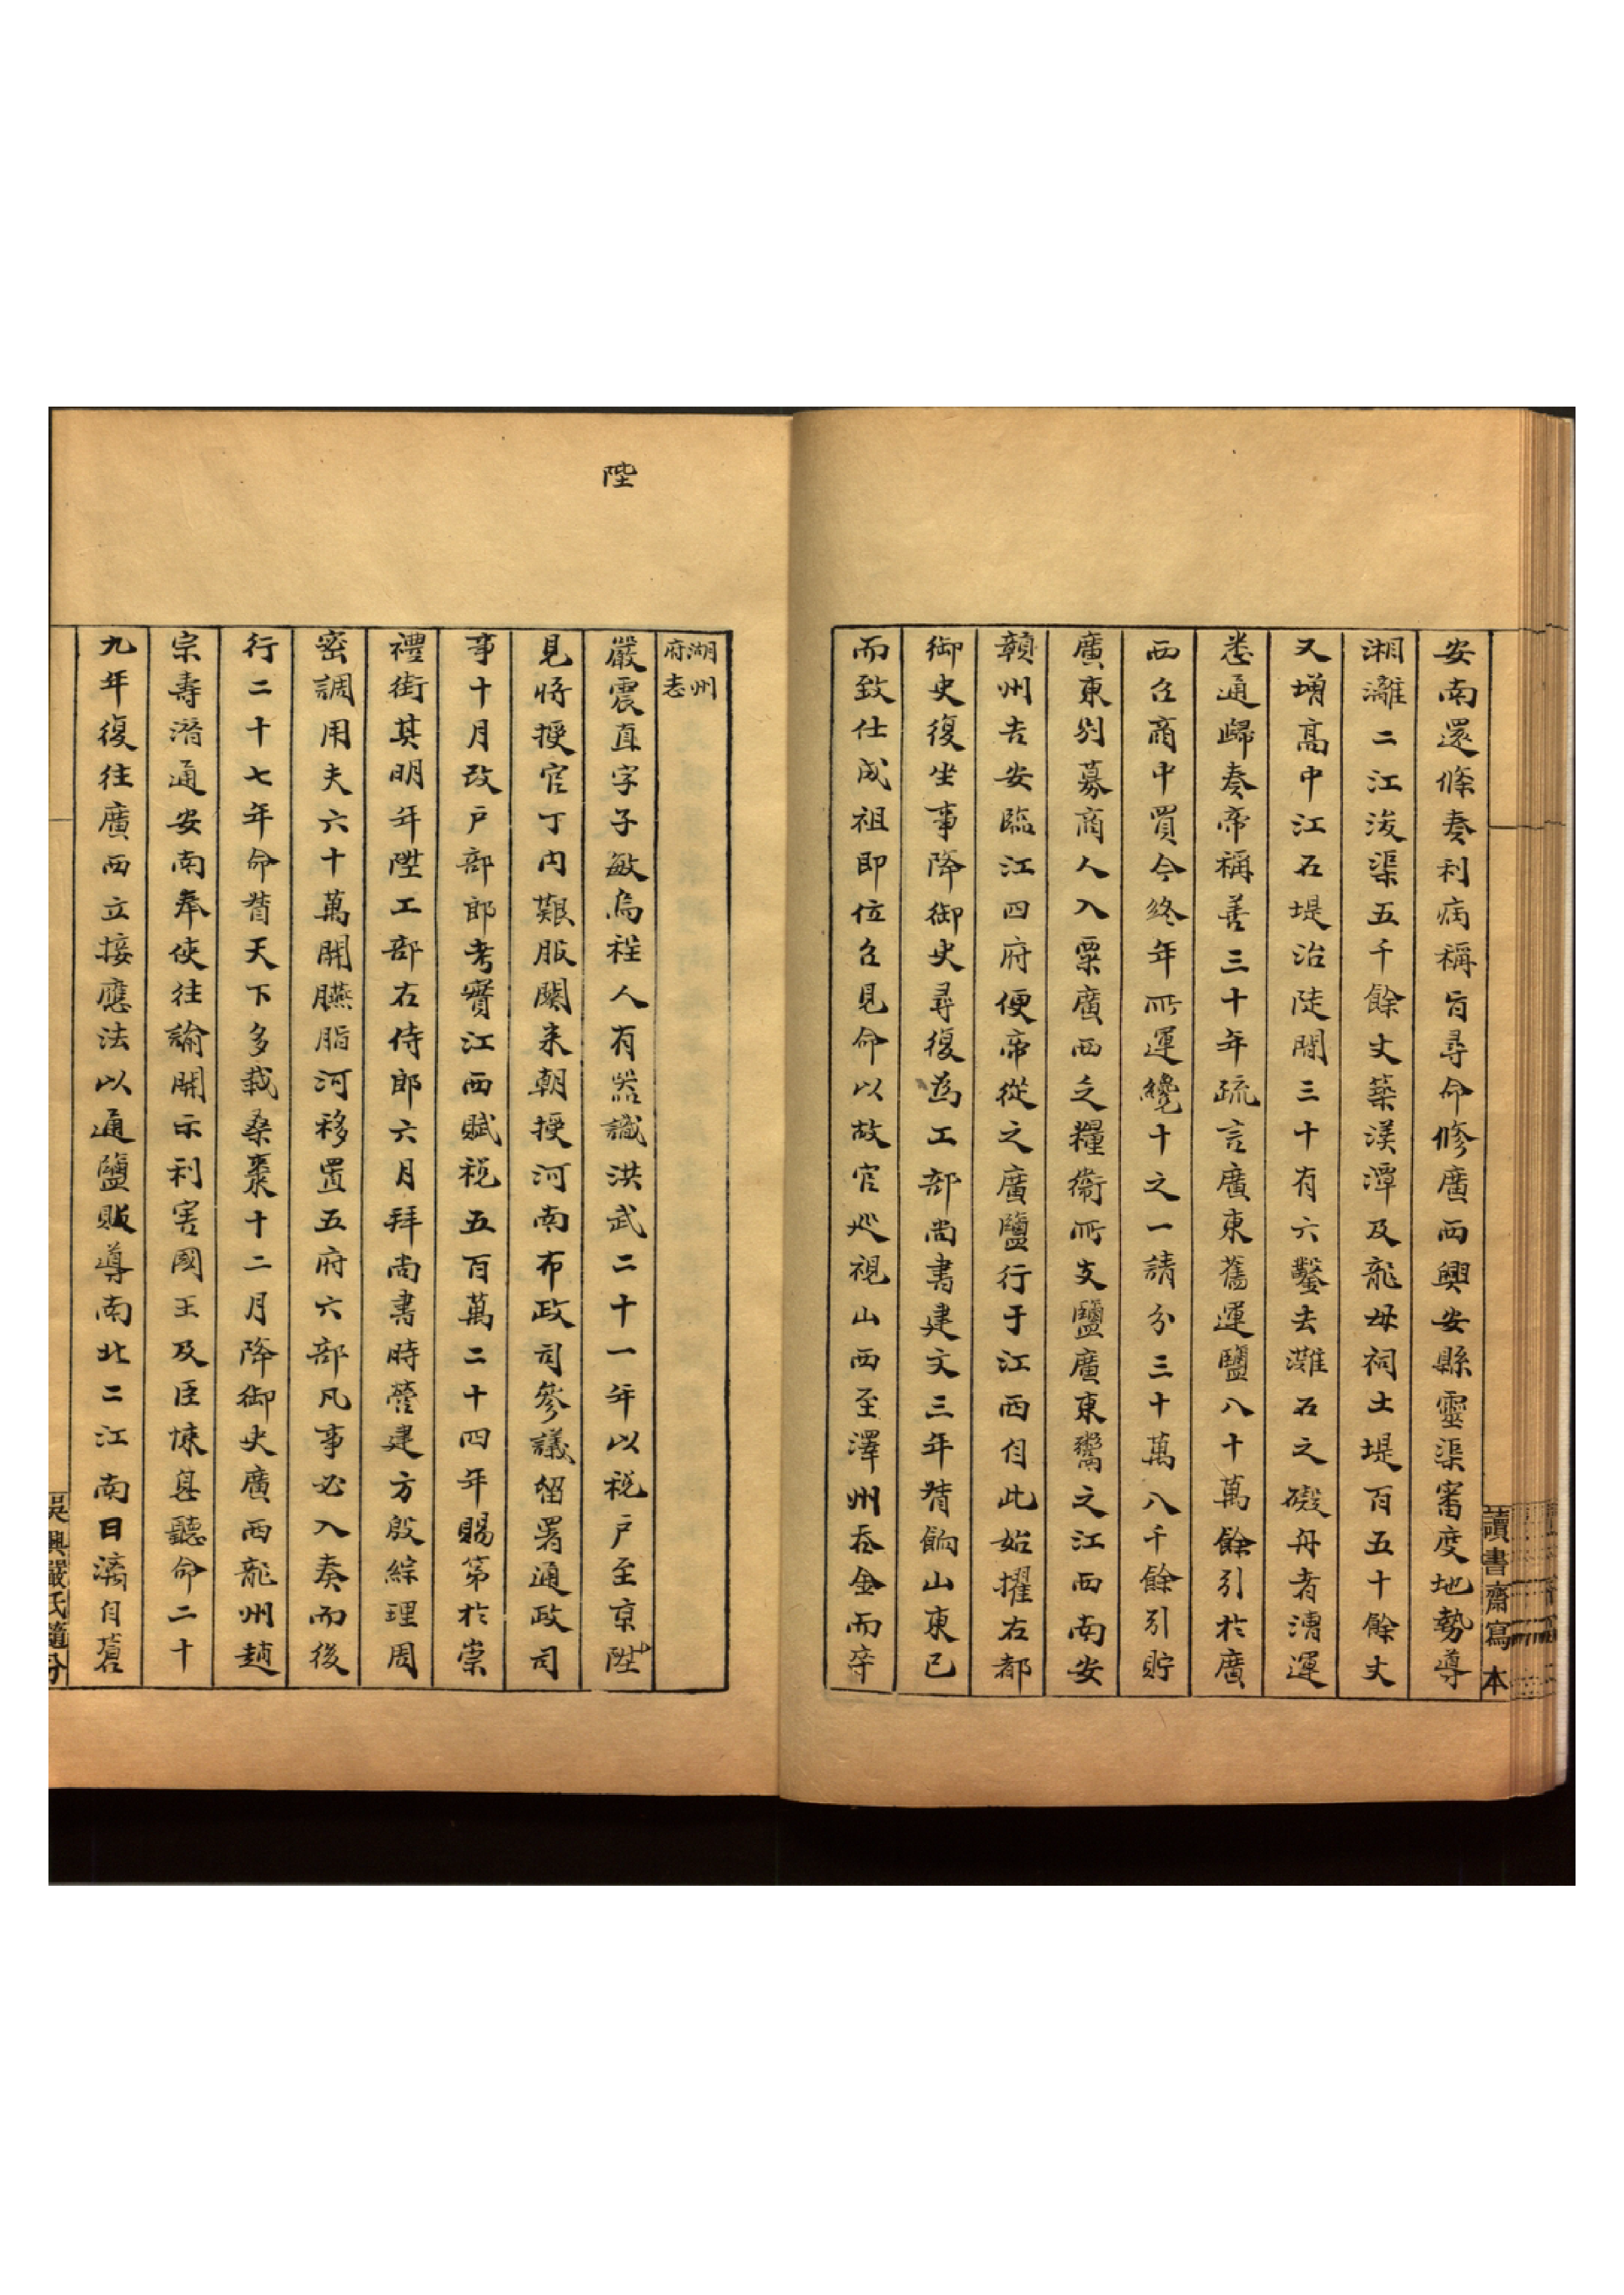 讀書齋寫本
安南還條奏利病稱旨尋命修廣西興安縣靈渠審度地勢導
湘灕二江浚渠五千餘丈築渼潭及龍母祠土堤百五十餘丈
又增高中江石堤治陡閘三十有六鑿去灘石之礙舟者漕運
悉通歸奏帝稱善三十年疏言廣東舊運鹽八十萬餘引於廣
西召商中買今終年所運纔十之一請分三十萬八千餘引貯
廣東別募商人入粟廣西之糧衛所支鹽廣東鬻之江西南安
贛州吉安臨江四府便帝從之廣鹽行于江西自此始擢右都
御史復坐事降御史尋復為工部尚書建文三年督餉山東已
而致仕成祖即位召見命以故官巡視山西至澤州吞金而卒
湖州
府志
陞
嚴震直字子敏烏程人有器識洪武二十一年以稅戶至京陛
見將授官丁內艱服闋来朝授河南布政司參議留署通政司
事十月改戶部郎考實江西賦稅五百萬二十四年賜第於崇
禮街其明年陞工部右侍郎六月拜尚書時營建方殷綜理周
密調用夫六十萬開臙脂河移置五府六部凡事必入奏而後
行二十七年命督天下多栽桑棗十二月降御史廣西龍州趙
宗壽潛通安南奉使往諭開示利害國王及臣悚息聽命二十
九年復往廣西立接應法以通鹽販導南北二江南曰漓自蒼
吳興嚴氏隨分